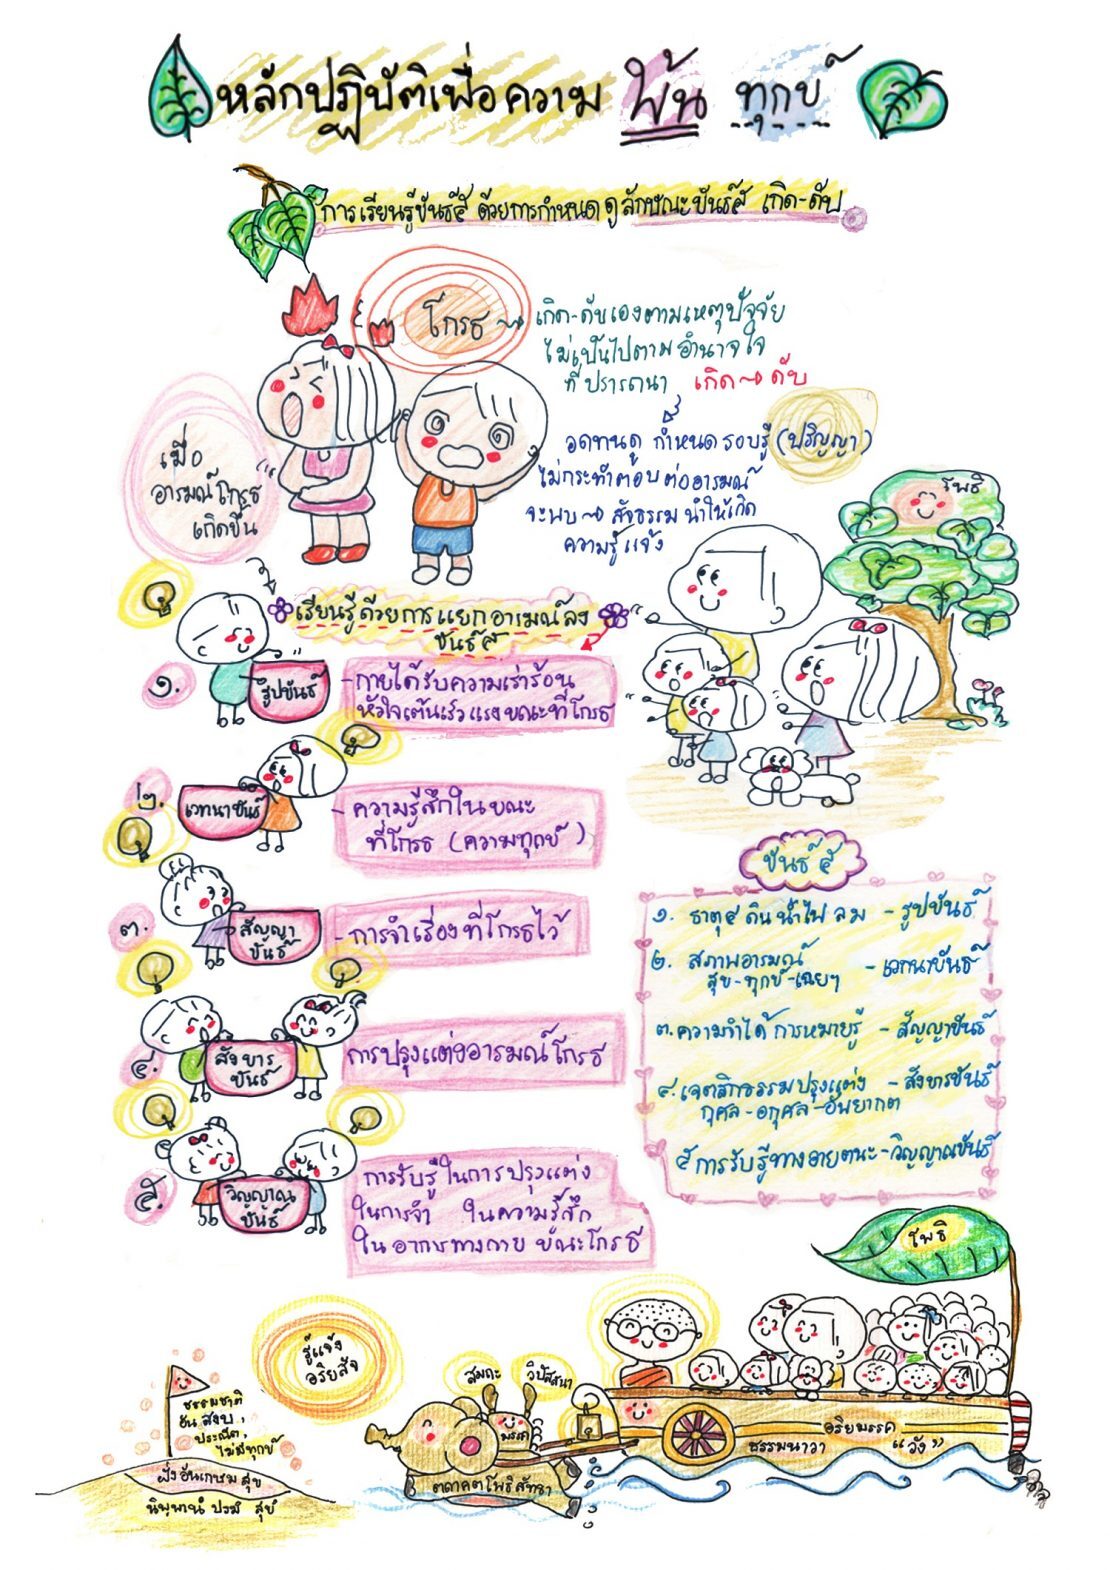 หลักปฏิบัติเพื่อความ พ้น ทุกข์
การเรียนรู้ขันธ์๕ ด้วยการกำหนด ดูลักษณะขันธ์๕ เกิด-ดับ
โกรธ
เกิด-ดับเองตามเหตุปัจจัย
ไม่เป็นไปตามอำนาจใจ
ที่ปรารถนา เกิด ดับ
เมื่อ
อารมณ์โกรธ
เกิดขึ้น
อดทนดู กำหนดรอบรู้ (ปริญญา)
ไม่กระทำตอบต่ออารมณ์
จะพบ สัจธรรม นำให้เกิด
ความรู้แจ้ง
โพธิ
เรียนรู้ด้วยการแยกอารมณ์ลง
ขันธ์๕
๑.
รูปขันธ์
- กายได้รับความเร่าร้อน
หัวใจเต้นเร็ว แรง ขณะที่โกรธ
๒.
เวทนาขันธ์
- ความรู้สึกในขณะ
ที่โกรธ (ความทุกข์)
๓.
สัญญา
ขันธ์
- การจำเรื่องที่โกรธไว้
๔.
สังขาร
ขันธ์
การปรุงแต่งอารมณ์โกรธ
๕.
วิญญาณ
ขันธ์
การรับรู้ในการปรุงแต่ง
ในการจำ ในความรู้สึก
ในอาการทางกาย ขณะโกรธ
ขันธ์ ๕
๑. ธาตุ๔ ดิน น้ำ ไฟ ลม - รูปขันธ์
๒. สภาพอารมณ์
สุข-ทุกข์-เฉยๆ - เวทนาขันธ์
๓. ความจำได้ การหมายรู้ - สัญญาขันธ์
๔. เจตสิกธรรมปรุงแต่ง - สังขารขันธ์
กุศล - อกุศล - อัพยากต
๕ การรับรู้ทางอายตนะ - วิญญาณขันธ์
โพธิ
รู้แจ้ง
อริยสัจ
สมถะ
วิปัสสนา
มรรค
ตถาคตโพธิสัทธา
อริยมรรค
ธรรมนาวา "วัง"
ธรรมชาติ
อัน สงบ,
ประณีต,
ไม่มีทุกข์
ฝั่งอันเกษม สุข
นิพฺพานํ ปรมํ สุขํ